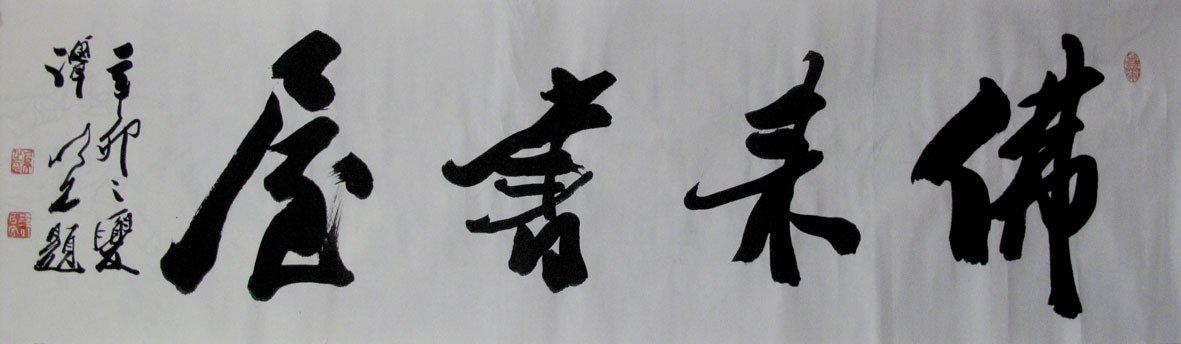 佛来書屋
辛卯之夏
譚 題